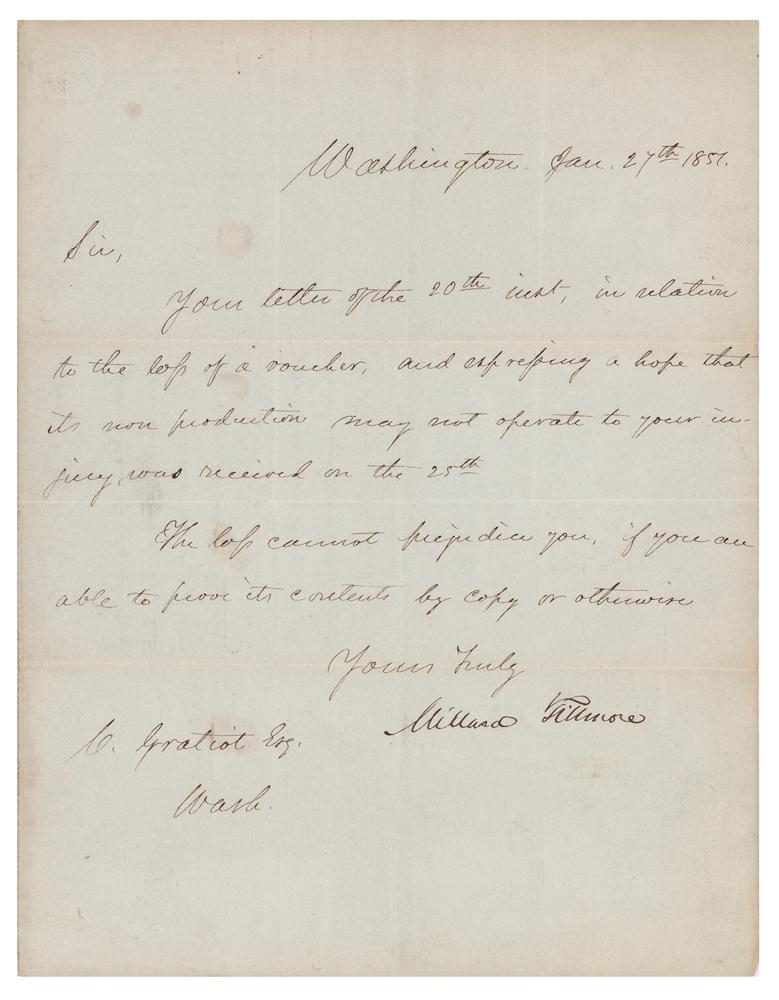 Washington. Jan. 27th 1851.
Sir,
Your letter of the 20th inst, in relation
to the loss of a voucher, and expressing a hope that
its non production may not operate to your in-
jury, was received on the 25th
The loss cannot prejudice you, if you are
able to prove its contents by copy or otherwise
Yours truly
Millard Fillmore
C. Gratiot Esq.
Wash.